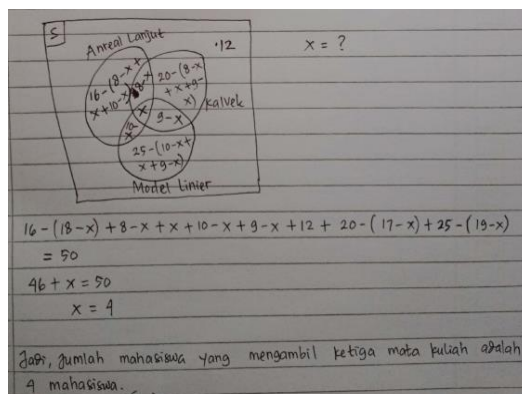 S
Anreal Lanjut
·12
x = ?
16-(8-x+
x+10-x)
8-x
20-(8-x
+x+9-
x)
kalvek
x
9-x
25-(10-x+
x+9-x)
Model Linier
16-(18-x)+8-x+x+10-x+9-x+12+20-(17-x)+25-(19-x)
= 50
46+x=50
x = 4
Jadi, Jumlah mahasiswa yang mengambil ketiga mata kuliah adalah
4 mahasiswa.